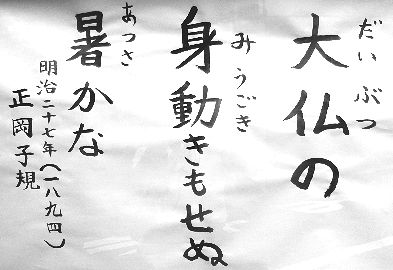 だいぶつ
大仏の
みうごき
身動きもせぬ
あつさ
暑かな
明治二十七年(一八九四)
正岡子規